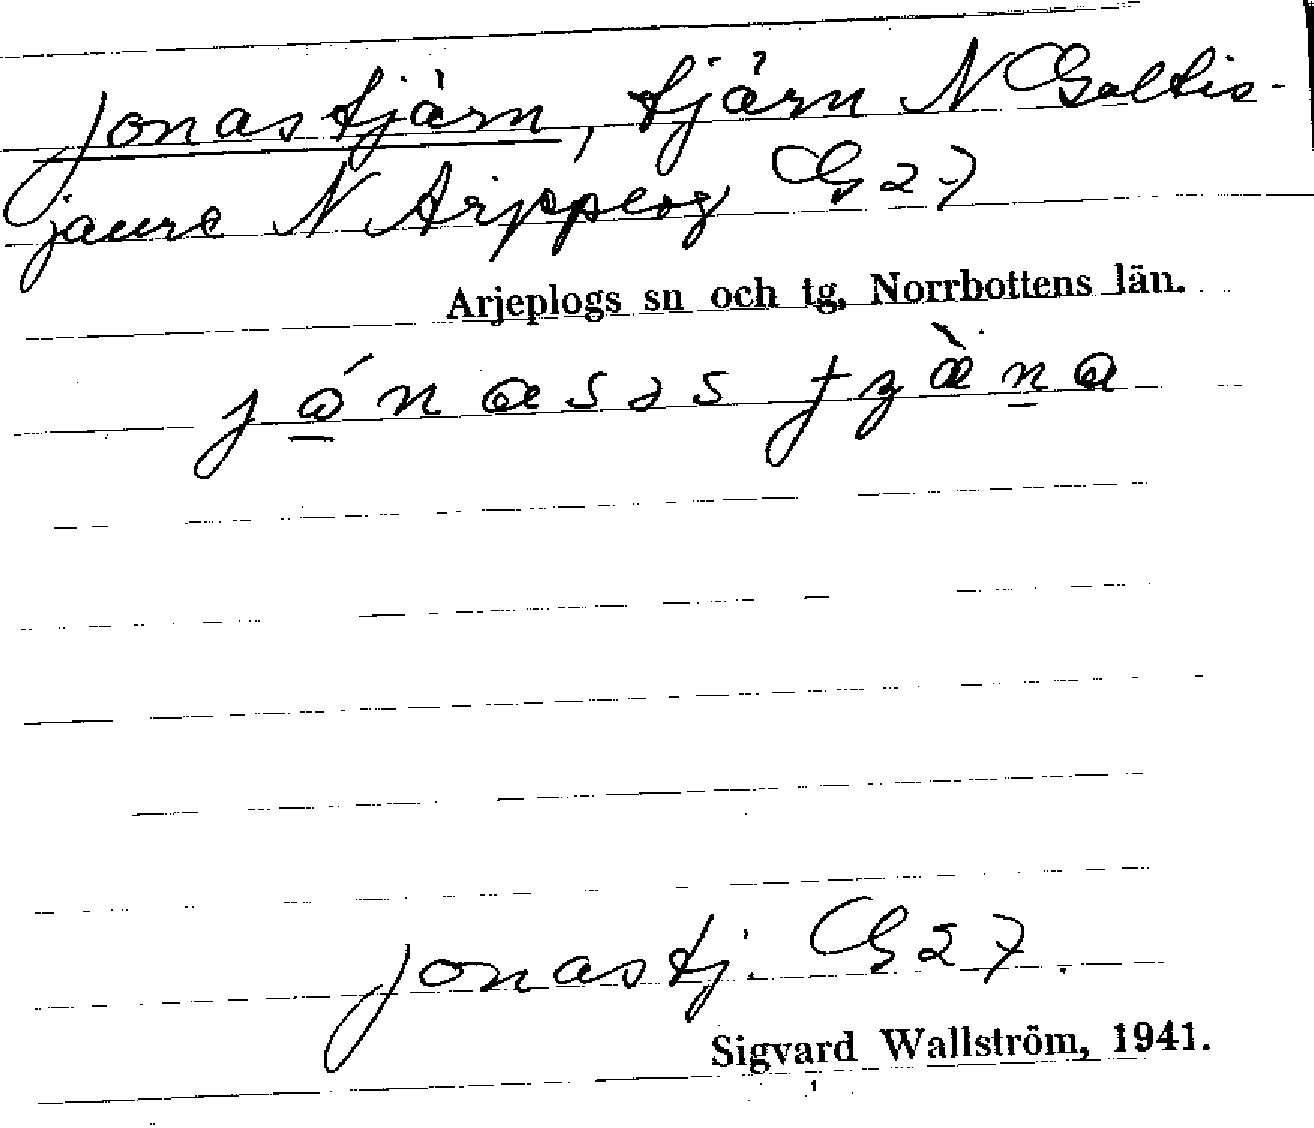 Jonastjärn, tjärn N Galtis-
jaure N Arjeplog G 27
Arjeplogs sn och tg, Norrbottens län.
Jonastj. G 27.
Sigvard Wallström, 1941.